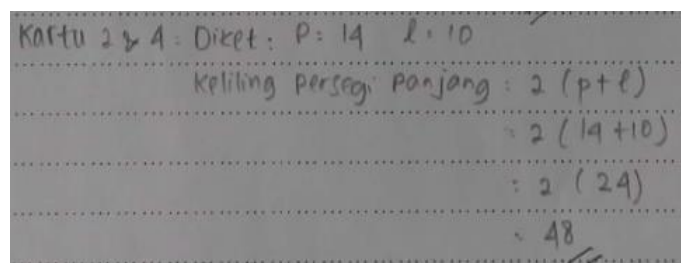 Kartu 2 & 4 : Diket : P : 14 l : 10
Keliling persegi panjang : 2 (p+l)
: 2 (14+10)
: 2 (24)
: 48